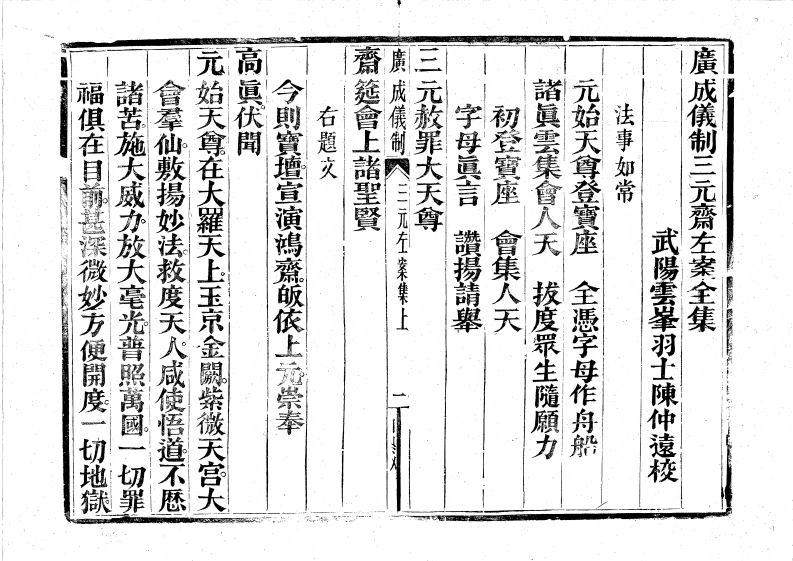 廣成儀制三元齋左案全集
武陽雲峯羽士陳仲遠校
法事如常
元始天尊登寶座　全憑字母作舟船
諸眞雲集會人天　拔度眾生隨願力
初登寶座　會集人天
字母眞言　讚揚請舉
三元赦罪大天尊
廣成儀制　三元左案集上　二
齋筵會上諸聖賢
右題文
今則寶壇宣演鴻齋皈依上元崇奉
高眞。伏聞
元始天尊。在大羅天上。玉京金闕。紫微天宮。大
會羣仙。敷揚妙法。救度天人。咸使悟道。不歷
諸苦。施大威力。放大毫光。普照萬國。一切罪
福俱在目前。甚深微妙方便開度一切地獄。